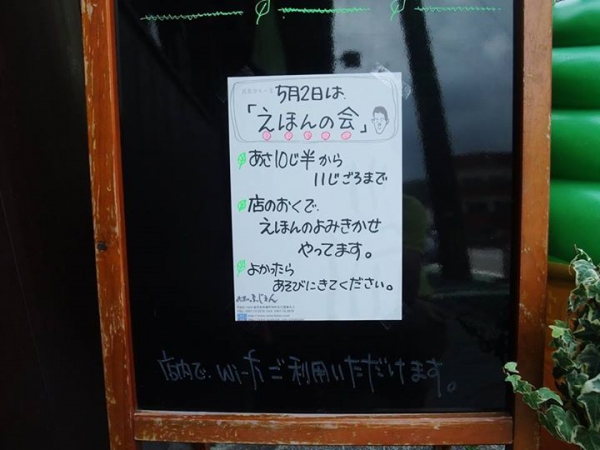 5月2日は、
「えほんの会」
あさ10じ半から
11じごろまで
店のおくで、
えほんのよみきかせ
やってます。
よかったら
あそびにきてください。
店内で、Wi-fiご利用いただけます。